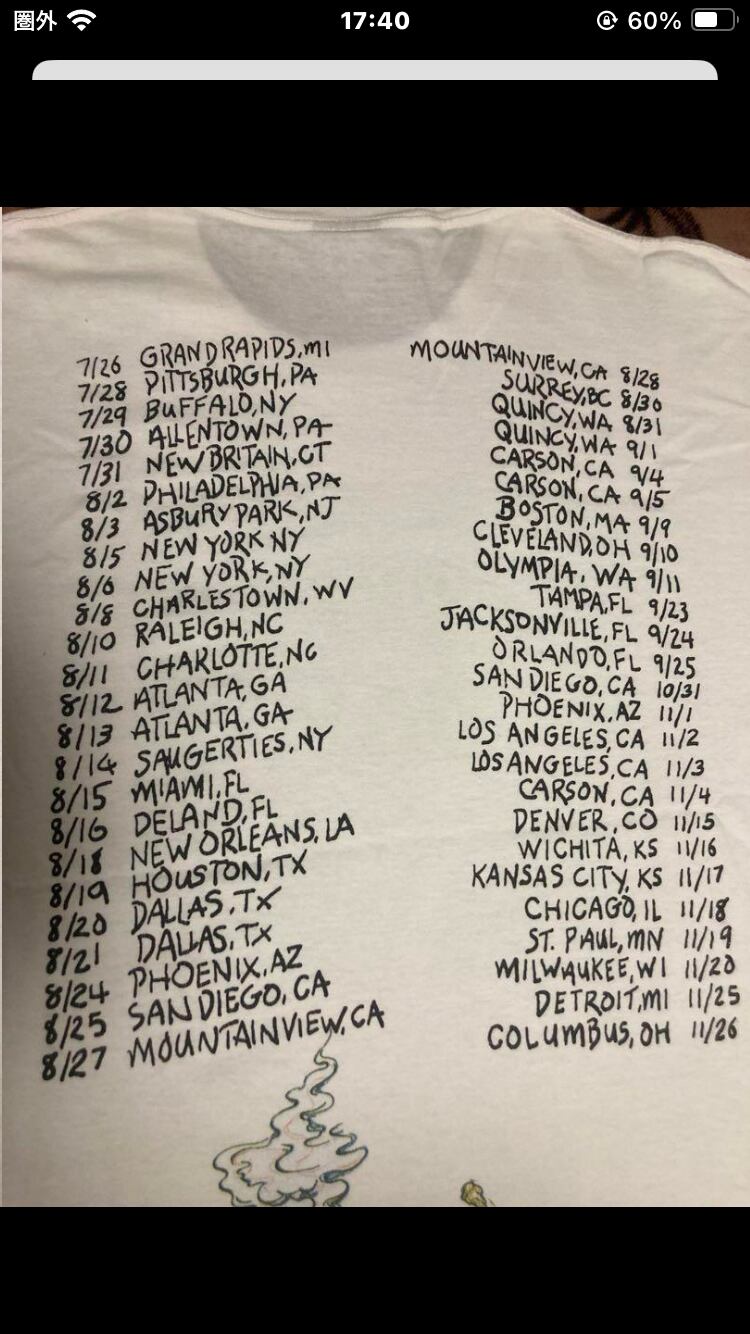 圏外 17:40 60%
7/26 GRAND RAPIDS, MI
7/28 PITTSBURGH, PA
7/29 BUFFALO, NY
7/30 ALLENTOWN, PA
7/31 NEW BRITAIN, CT
8/2 PHILADELPHIA, PA
8/3 ASBURY PARK, NJ
8/5 NEW YORK NY
8/6 NEW YORK, NY
8/8 CHARLESTOWN, WV
8/10 RALEIGH, NC
8/11 CHARLOTTE, NC
8/12 ATLANTA, GA
8/13 ATLANTA, GA
8/14 SAUGERTIES, NY
8/15 MIAMI, FL
8/16 DELAND, FL
8/18 NEW ORLEANS, LA
8/19 HOUSTON, TX
8/20 DALLAS, TX
8/21 DALLAS, TX
8/24 PHOENIX, AZ
8/25 SAN DIEGO, CA
8/27 MOUNTAINVIEW, CA
MOUNTAINVIEW, CA 8/28
SURREY, BC 8/30
QUINCY, WA 8/31
QUINCY, WA 9/1
CARSON, CA 9/4
CARSON, CA 9/5
BOSTON, MA 9/9
CLEVELAND, OH 9/10
OLYMPIA, WA 9/11
TAMPA, FL 9/23
JACKSONVILLE, FL 9/24
ORLANDO, FL 9/25
SAN DIEGO, CA 10/31
PHOENIX, AZ 11/1
LOS ANGELES, CA 11/2
LOS ANGELES, CA 11/3
CARSON, CA 11/4
DENVER, CO 11/15
WICHITA, KS 11/16
KANSAS CITY, KS 11/17
CHICAGO, IL 11/18
ST. PAUL, MN 11/19
MILWAUKEE, WI 11/20
DETROIT, MI 11/25
COLUMBUS, OH 11/26